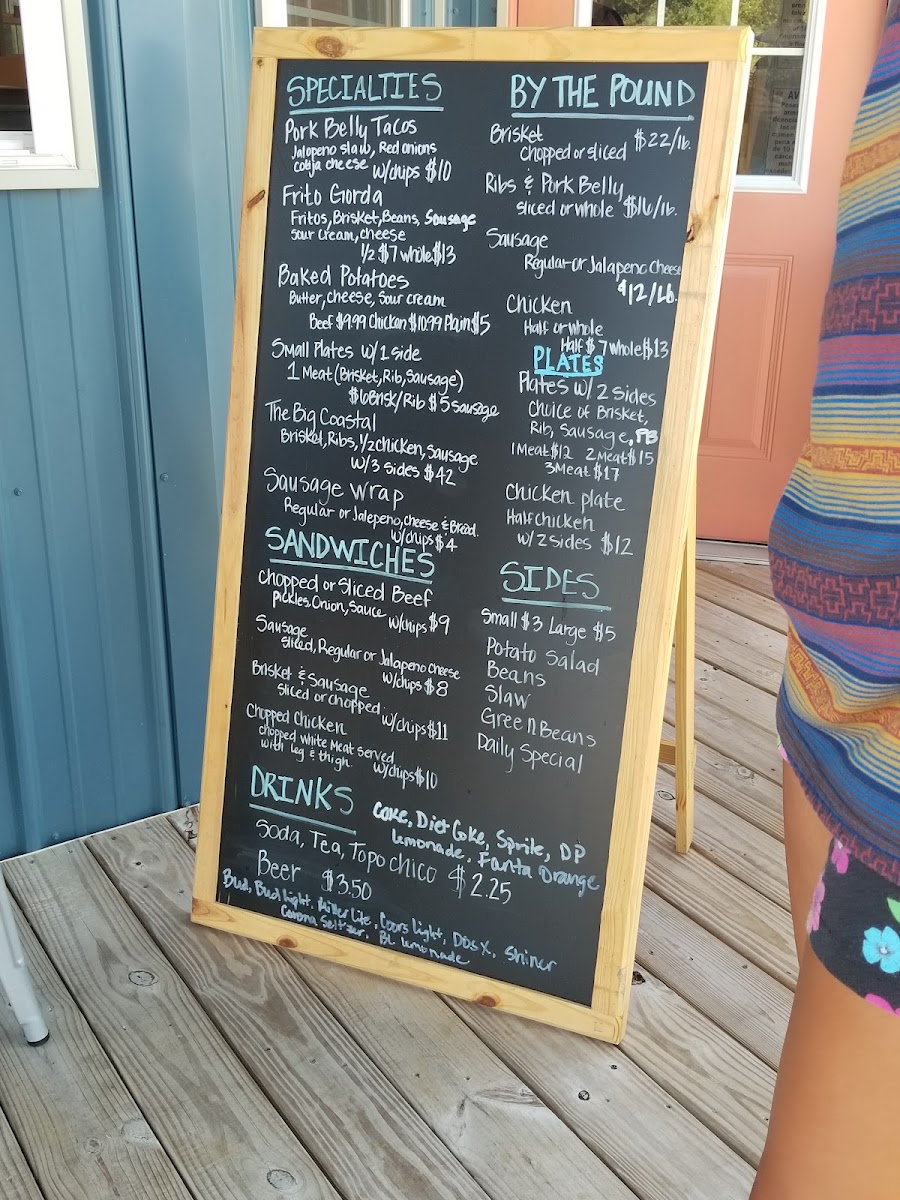 SPECIALTIES
Pork Belly Tacos
Jalapeno slaw, Red onions
cotija cheese w/chips $10
Frito Gorda
Fritos, Brisket, Beans, Sausage
Sour cream, cheese
1/2 $7 whole $13
Baked Potatoes
Butter, cheese, sour cream
Beef $9.99 Chicken $10.99 Plain $5
Small Plates w/ 1 side
1 Meat (Brisket, Rib, Sausage)
$6 Brisk/Rib $5 sausage
The Big Coastal
Brisket, Ribs, 1/2 chicken, sausage
w/3 sides $42
Sausage wrap
Regular or Jalepeno, cheese & Bread
w/chips $4
SANDWICHES
Chopped or Sliced Beef
pickles, Onion, Sauce w/chips $9
Sausage
sliced, Regular or Jalapeno cheese
w/chips $8
Brisket & Sausage
sliced or chopped w/chips $11
Chopped Chicken
chopped white Meat served
with leg & thigh w/chips $10
DRINKS
Coke, Diet Coke, Sprite, DP
lemonade, Fanta Orange
Soda, Tea, Topo chico $2.25
Beer $3.50
Bud, Bud light, Miller Lite, Coors light, Dos X, Shiner
Corona Seltzer, BL lemonade
BY THE POUND
Brisket $22/lb.
chopped or sliced
Ribs & Pork Belly
sliced or whole $16/lb.
Sausage
Regular or Jalapeno Cheese
$12/Lb.
Chicken
Half or whole
Half $7 whole $13
PLATES
Plates w/ 2 sides
Choice of Brisket,
Rib, Sausage, PB
1 Meat $12 2 Meat $15
3 Meat $17
Chicken plate
Half chicken
w/ 2 sides $12
SIDES
Small $3 Large $5
Potato Salad
Beans
Slaw
Green Beans
Daily Special